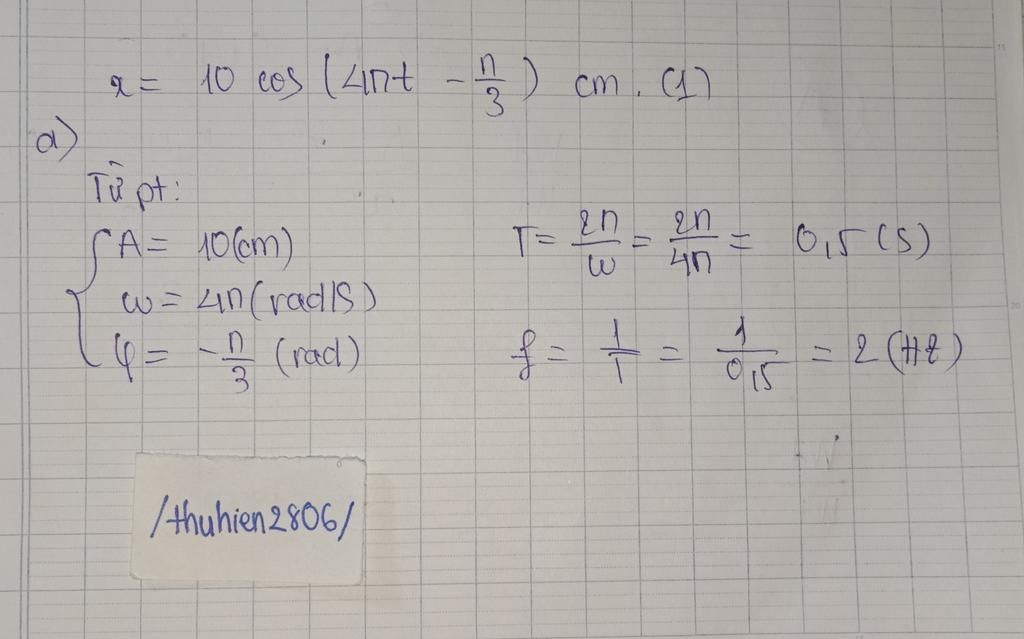 x = 10 cos (4πt - π/3) cm. (1)
a)
Từ pt:
{ A = 10(cm)
ω = 4π(rad/s)
φ = -π/3 (rad)
T = 2π/ω = 2π/4π = 0,5 (s)
f = 1/T = 1/0,5 = 2 (Hz)
/thuhien2806/